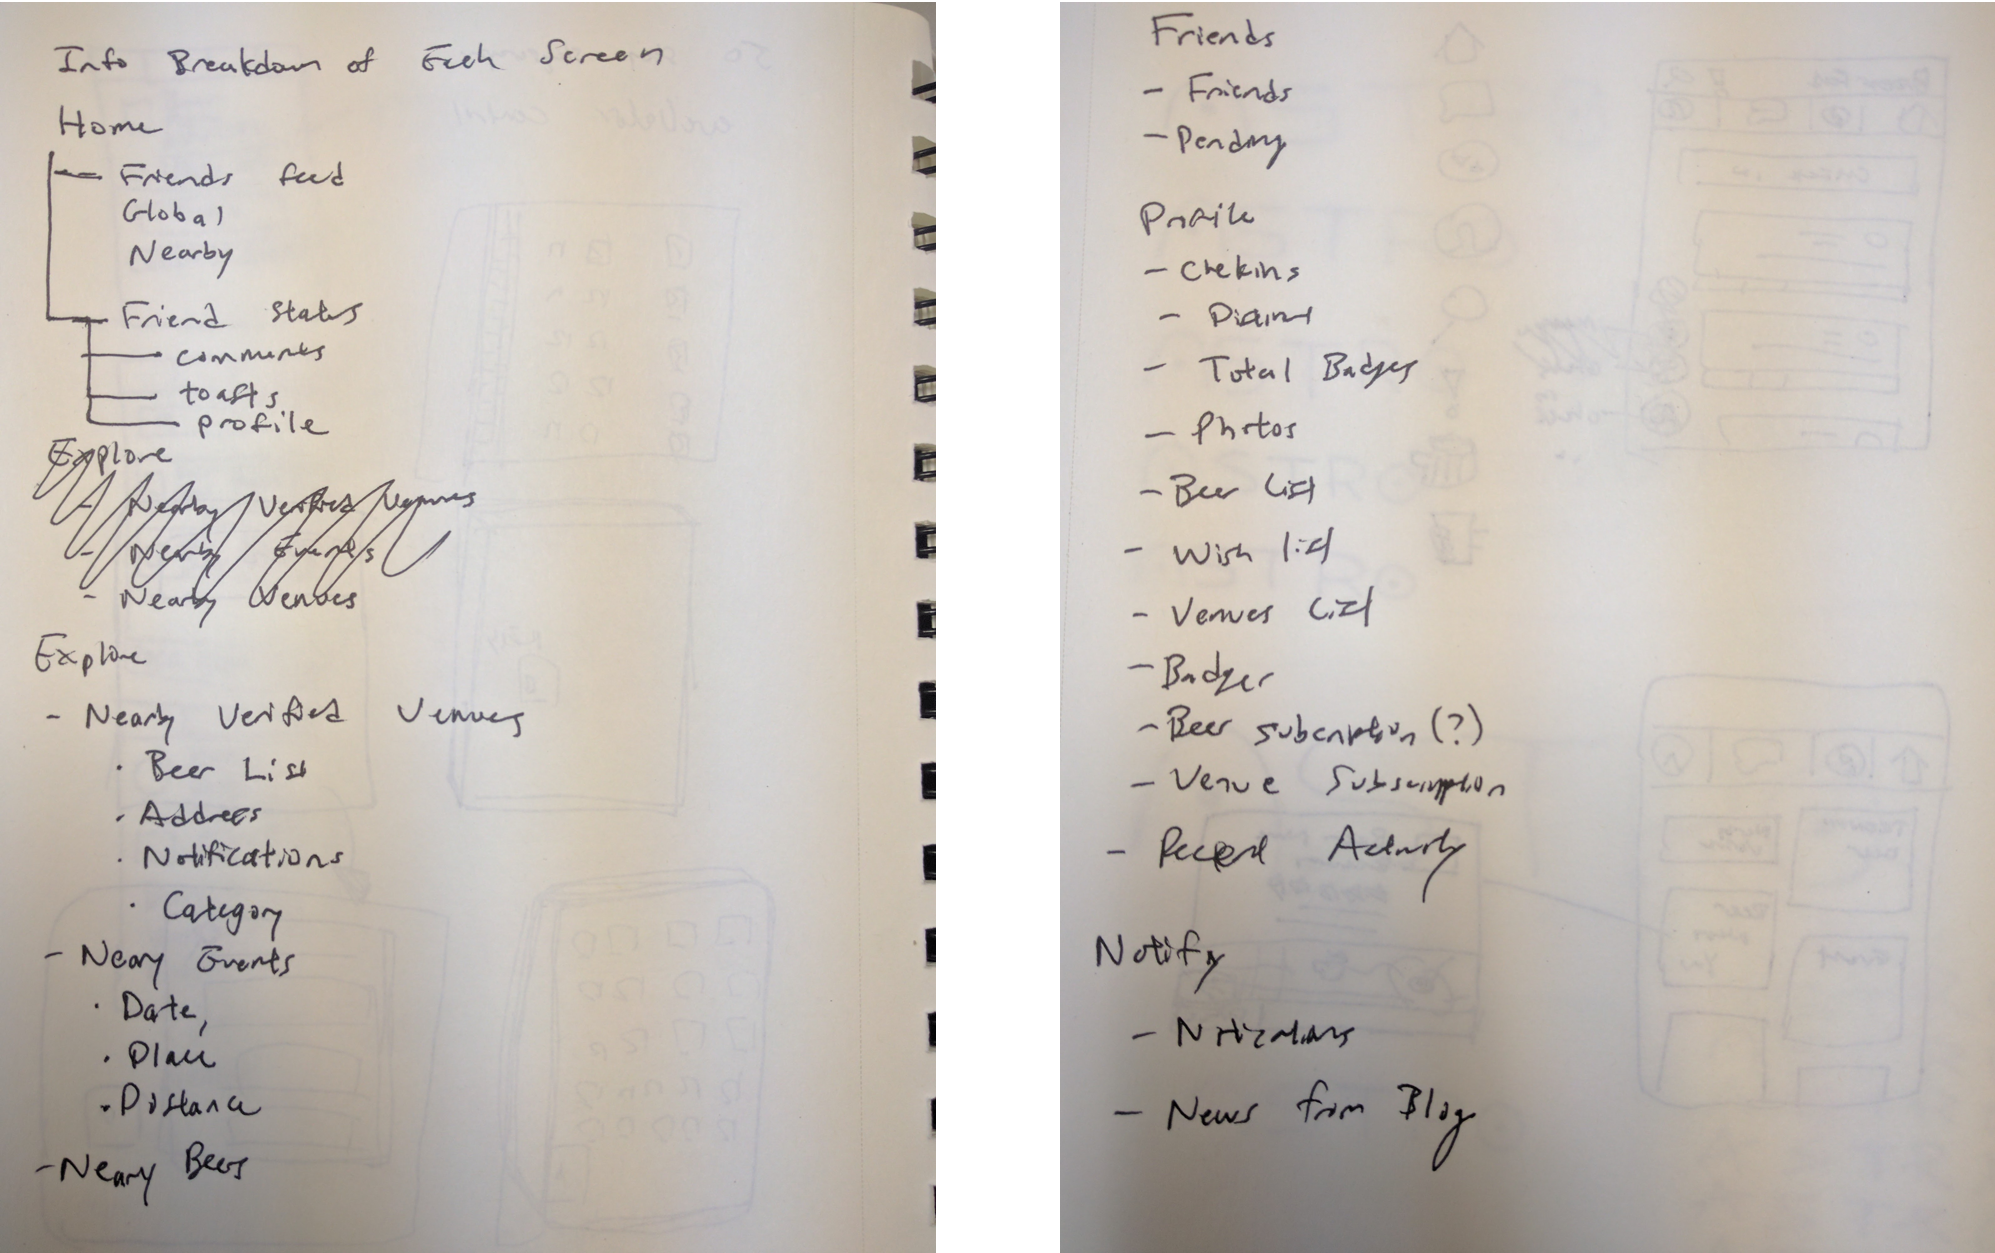 Info Breakdown of Each Screen
Home
- Friends feed
Global
Nearby
Friend Status
comments
toasts
profile
Explore
- Nearby Verified Venues
- Nearby Events
- Nearby Venues
Explore
- Nearly Verified Venues
· Beer List
· Address
· Notifications
· Category
- Neary Events
· Date,
· Place
· Distance
- Neary Beers
Friends
- Friends
- Pending
Profile
- Chekins
- Total Badges
- Photos
- Beer List
- Wish list
- Venues List
- Badges
- Beer subcription (?)
- Venue Subscription
- Recent Activity
Notify
- Notications
- News from Blog